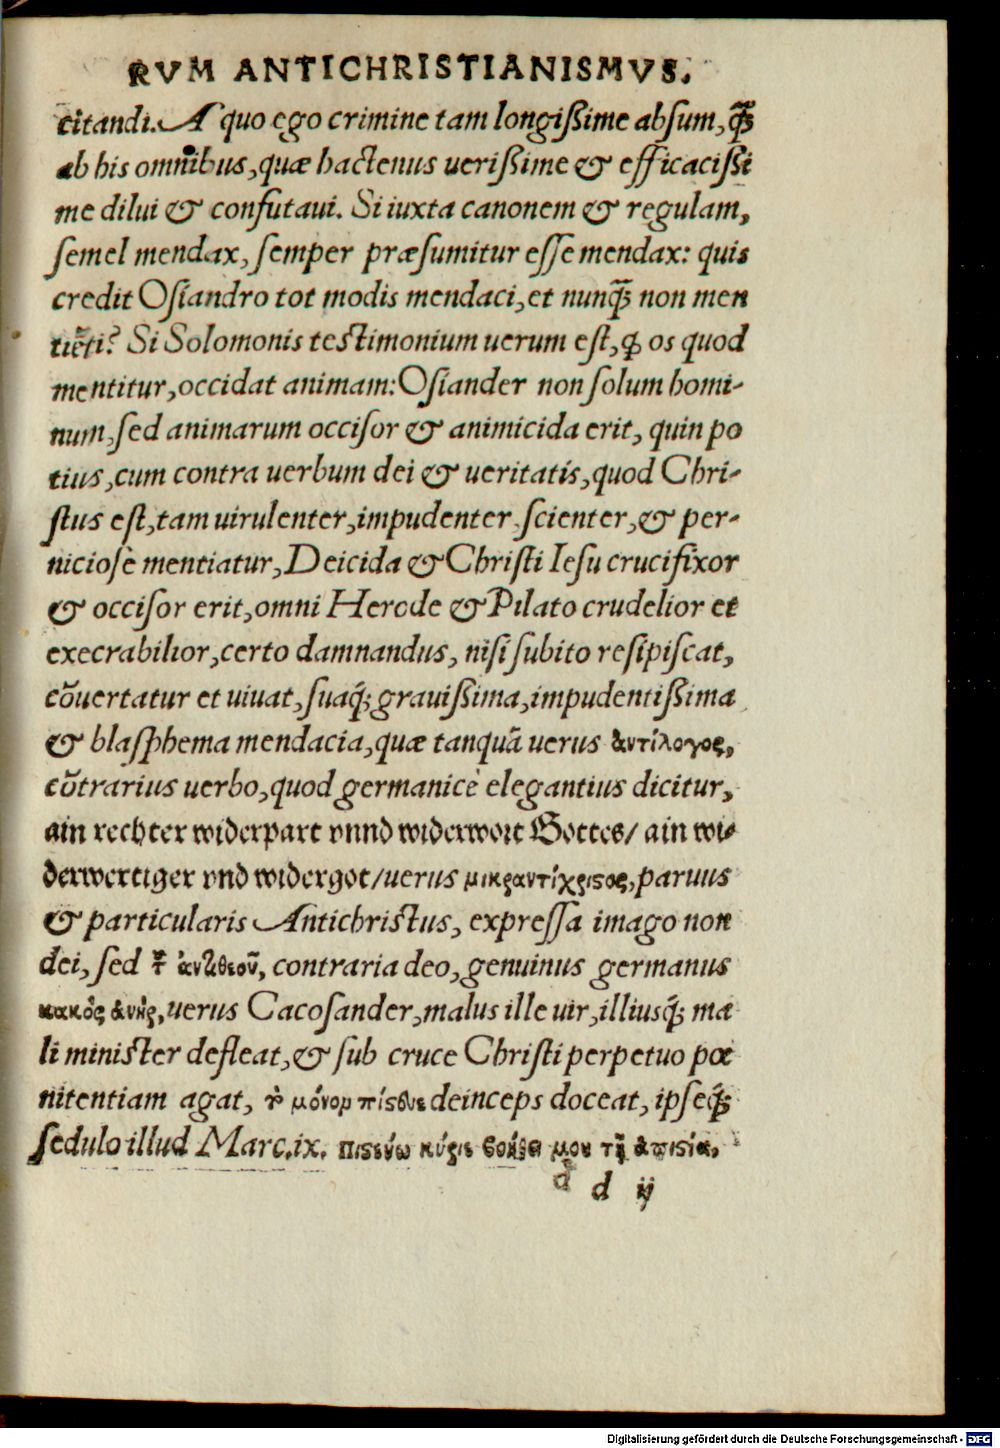 RVM ANTICHRISTIANISMVS.
citandi. A quo ego crimine tam longißime absum, quã
ab his omnibus, quæ hactenus uerißime & efficacißi
me dilui & confutaui. Si iuxta canonem & regulam,
semel mendax, semper præsumitur esse mendax: quis
credit Osiandro tot modis mendaci, et nunquã non men
tiẽti? Si Solomonis testimonium uerum est, ꝙ os quod
mentitur, occidat animam: Osiander non solum homi-
num, sed animarum occisor & animicida erit, quin po
tius, cum contra uerbum dei & ueritatis, quod Chri-
stus est, tam uirulenter, impudenter, scienter, & per-
niciosè mentiatur, Deicida & Christi Iesu crucifixor
& occisor erit, omni Herode & Pilato crudelior et
execrabilior, certo damnandus, nisi subito resipiscat,
cõuertatur et uiuat, suaq́; grauißima, impudentißima
& blasphema mendacia, quæ tanquã uerus ἀντίλογος,
cõtrarius uerbo, quod germanicè elegantius dicitur,
ain rechter widerpart vnnd widerwort Gottes/ ain wi-
derwertiger vnd widergot/ uerus μικραντίχριϛος, paruus
& particularis Antichristus, expressa imago non
dei, sed τ͂ ἀντιθεοῦ, contraria deo, genuinus germanus
κακὸς ἀνὴρ, uerus Cacosander, malus ille uir, illiusq́; ma
li minister defleat, & sub cruce Christi perpetuo pœ
nitentiam agat, τ̀ μόνον πίϛθε deinceps doceat, ipseq́;
sedulo illud Marc. ix. πιϛεύω κύριε βοήθει μου τῇ ἀπιϛίᾳ,
d ij